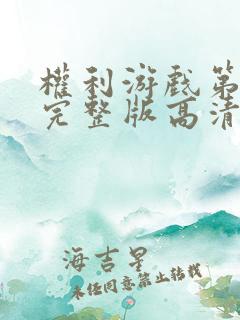 權利游戲第
完整版高清
海吉星
未经同意禁止转载